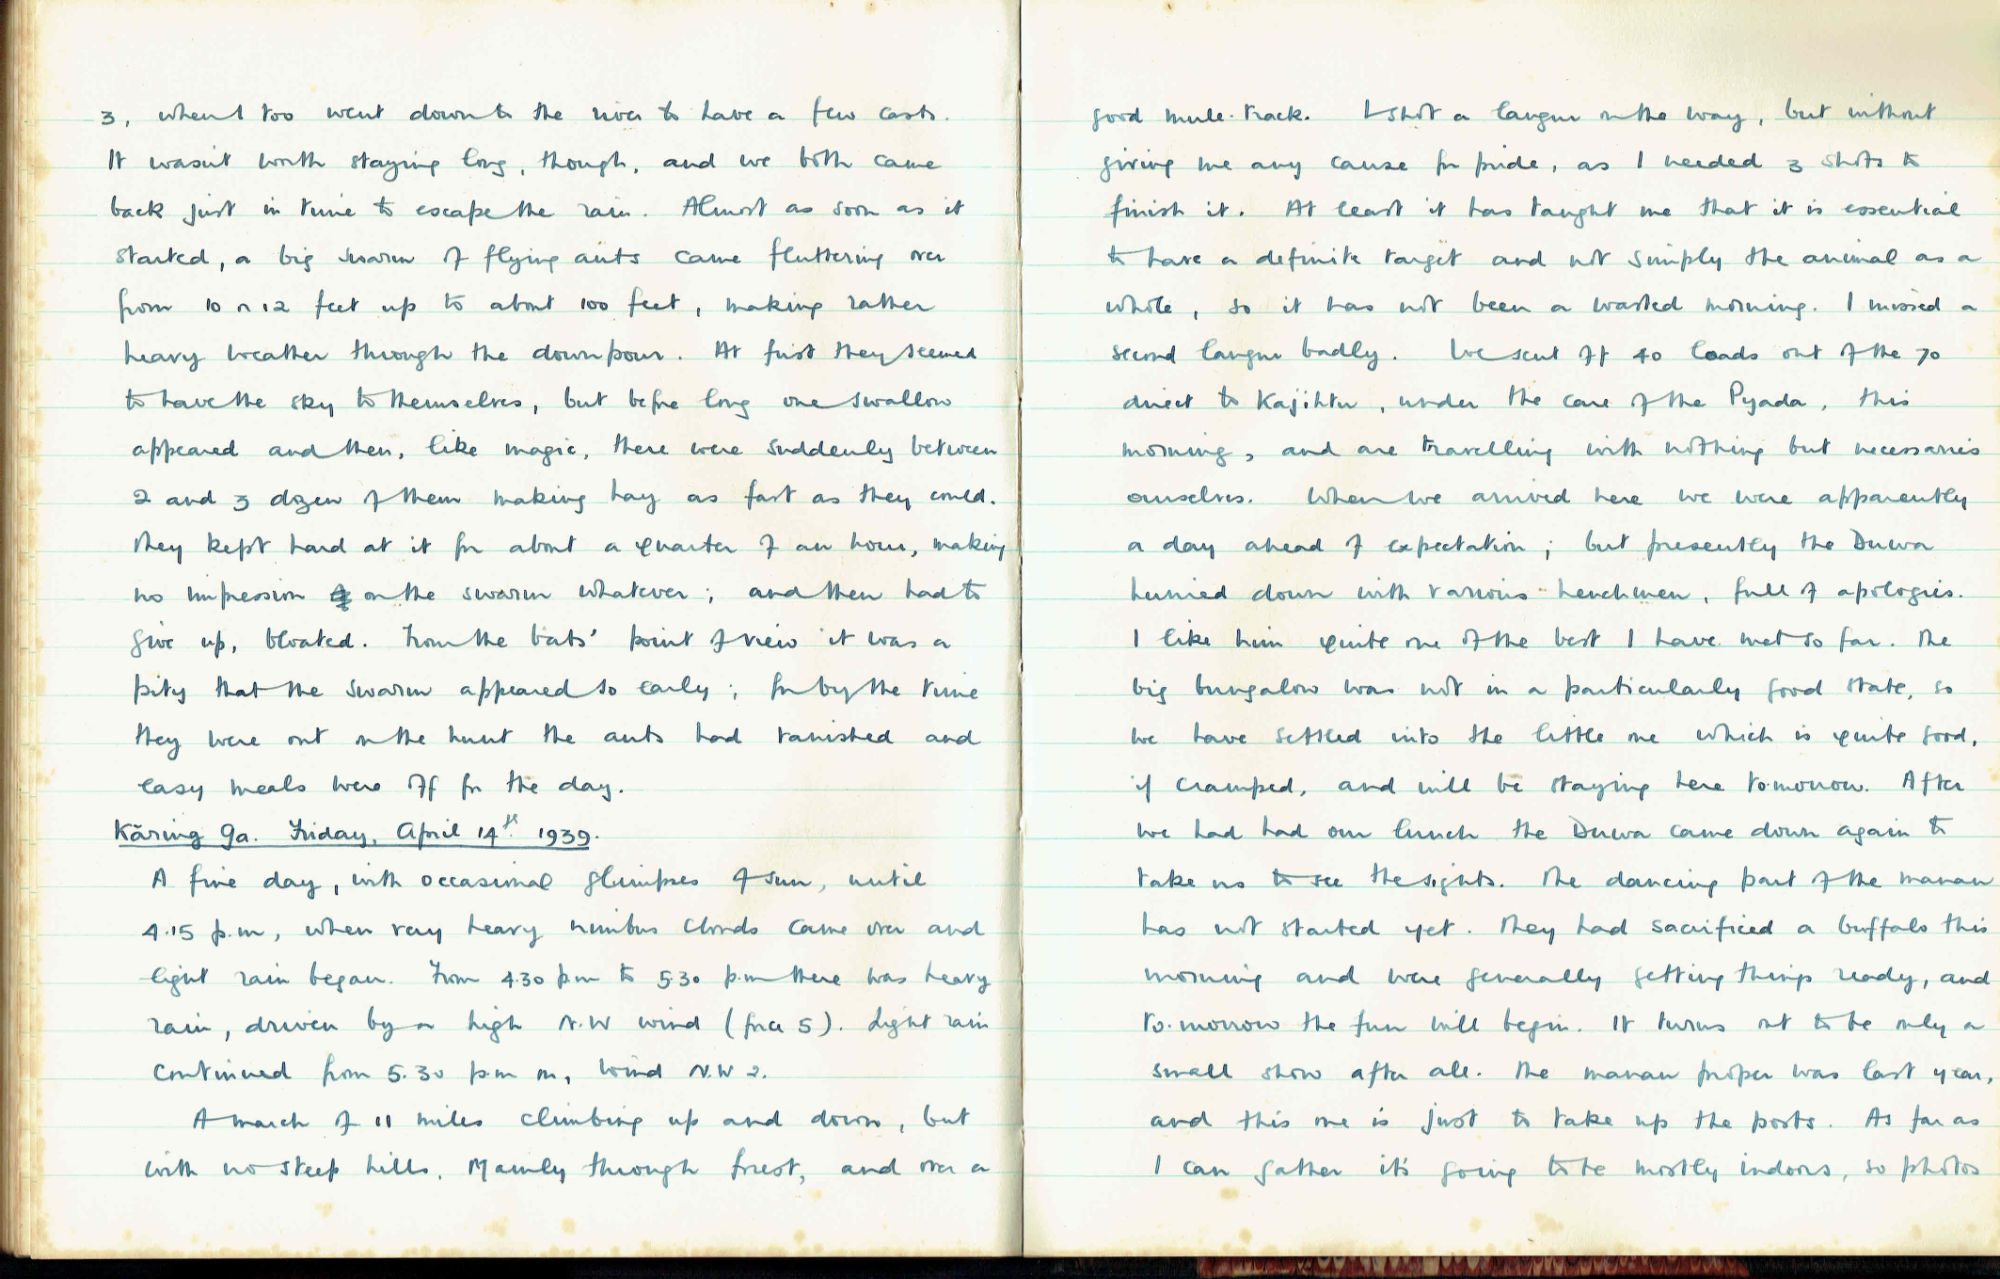 3, when I too went down to the river to have a few casts.
It wasn't worth staying long, though, and we both came
back just in time to escape the rain. Almost as soon as it
started, a big swarm of flying ants came fluttering over
from 10 or 12 feet up to about 100 feet, making rather
heavy weather through the downpour. At first they seemed
to have the sky to themselves, but before long one swallow
appeared and then, like magic, there were suddenly between
2 and 3 dozen of them making hay as fast as they could.
They kept hard at it for about a quarter of an hour, making
no impression on the swarm whatever; and then had to
give up, bloated. From the bats' point of view it was a
pity that the swarm appeared so early; for by the time
they were out on the hunt the ants had vanished and
easy meals were off for the day.
Kăring Ga. Friday, April 14th 1939.
A fine day, with occasional glimpses of sun, until
4.15 p.m, when very heavy nimbus clouds came over and
light rain began. From 4.30 pm to 5.30 p.m there was heavy
rain, driven by a high N.W wind (force 5). Light rain
continued from 5.30 pm on, wind N.W 2.
A march of 11 miles climbing up and down, but
with no steep hills. Mainly through forest, and over a
good mule-track. I shot a langur on the way, but without
giving me any cause for pride, as I needed 3 shots to
finish it. At least it has taught me that it is essential
to have a definite target and not simply the animal as a
whole, so it has not been a wasted morning. I missed a
second langur badly. We sent off 40 loads out of the 70
direct to Kajihtu, under the care of the Pyada, this
morning, and are travelling with nothing but necessaries
ourselves. When we arrived here we were apparently
a day ahead of expectation; but presently the Duwa
hurried down with various henchmen, full of apologies.
I like him quite one of the best I have met so far. The
big bungalow was not in a particularly good state, so
we have settled into the little one which is quite good,
if cramped, and will be staying here to-morrow. After
we had had our lunch the Duwa came down again to
take us to see the sights. The dancing part of the manau
has not started yet. They had sacrificed a buffalo this
morning and were generally getting things ready, and
to-morrow the fun will begin. It turns out to be only a
small show after all. The manau proper was last year,
and this one is just to take up the posts. As far as
I can gather it's going to be mostly indoors, so photos